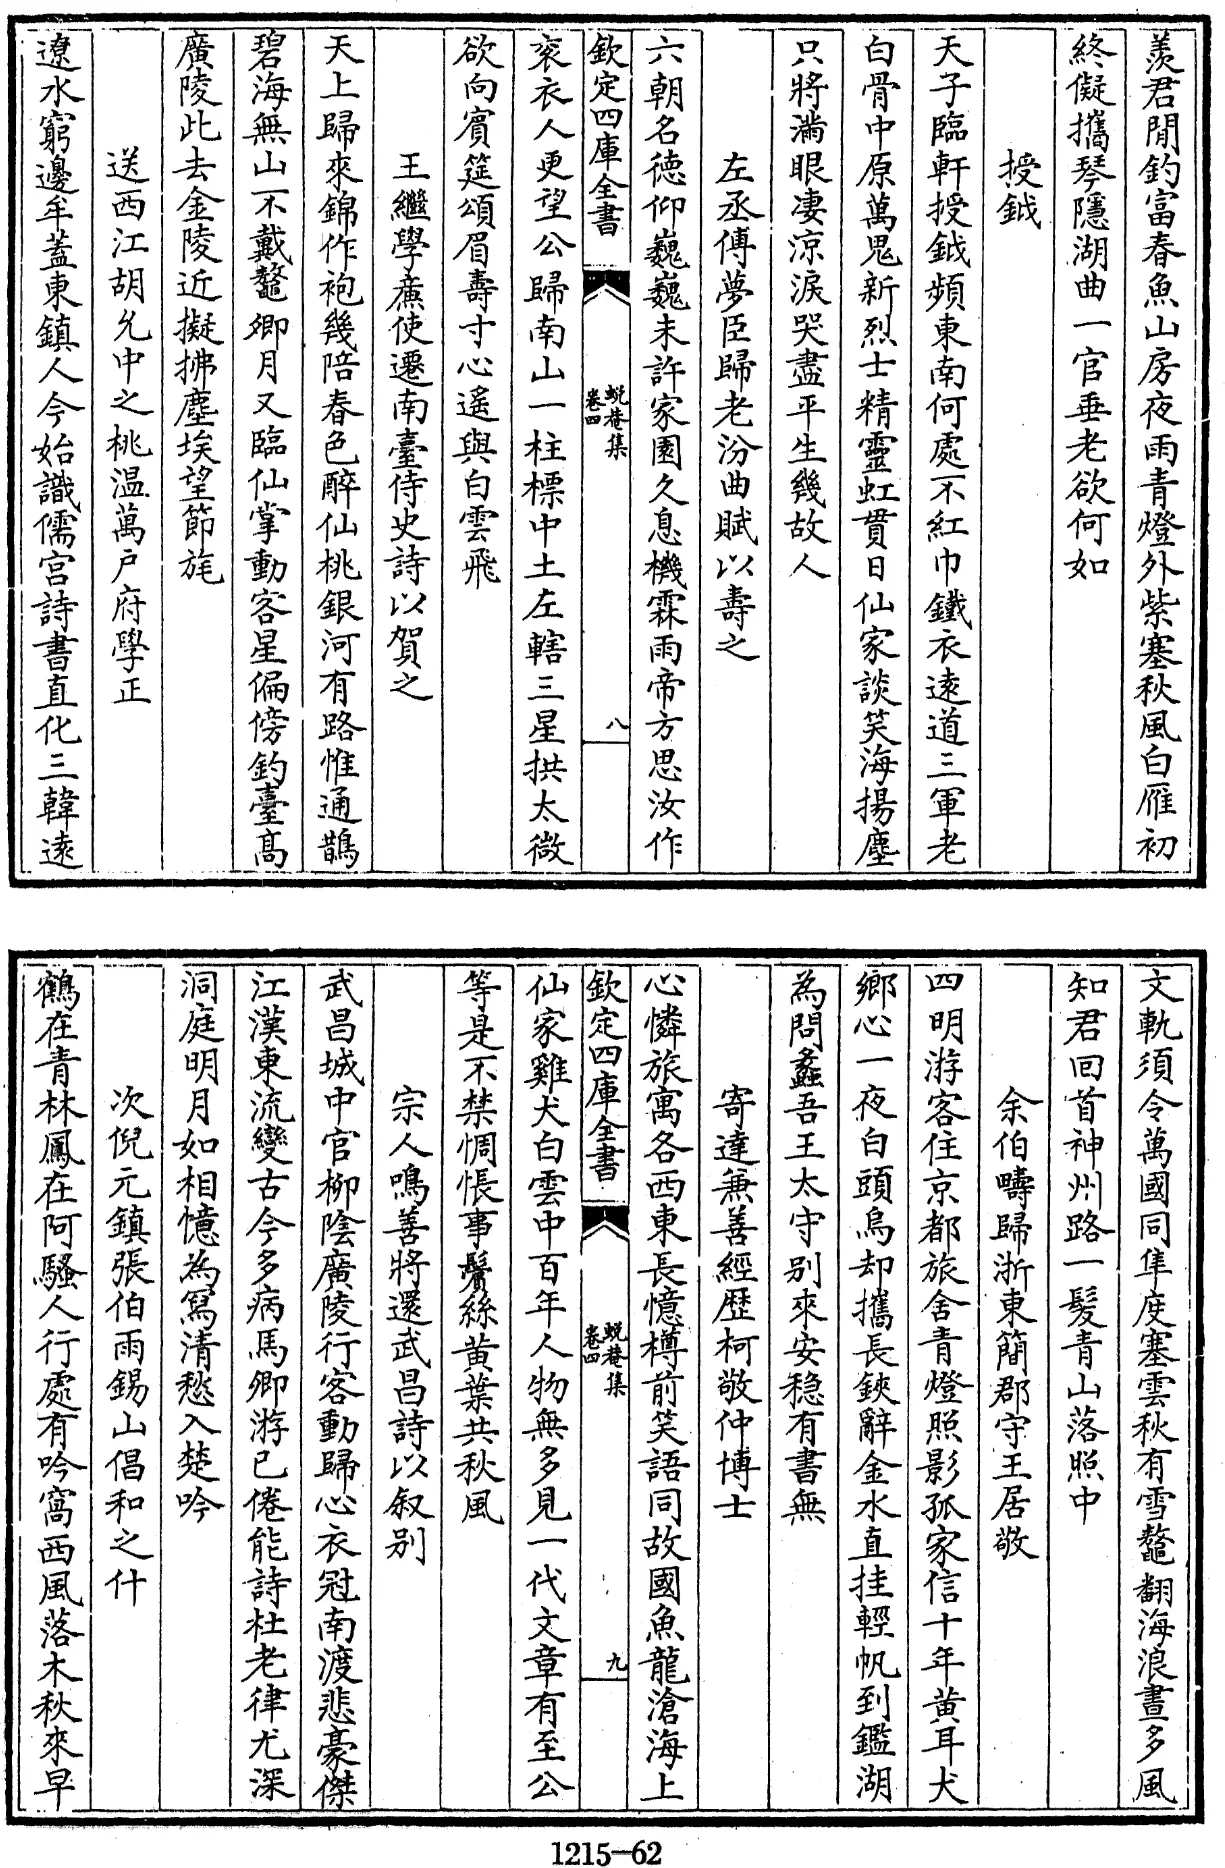 羨君閒釣富春魚山房夜雨青燈外紫塞秋風白雁初
終儗攜琴隱湖曲一官垂老欲何如
授鉞
天子臨軒授鉞頻東南何處不紅巾鐵衣遠道三軍老
白骨中原萬鬼新烈士精靈虹貫日仙家談笑海揚塵
只將滿眼凄涼淚哭盡平生幾故人
左丞傅夢臣歸老汾曲賦以壽之
六朝名德仰巍巍未許家園久息機霖雨帝方思汝作
欽定四庫全書
蛻菴集
卷四
八
衮衣人更望公歸南山一柱標中土左轄三星拱太微
欲向賓筵頌眉壽寸心遙與白雲飛
王繼學亷使遷南臺侍史詩以賀之
天上歸來錦作袍幾陪春色醉仙桃銀河有路惟通鵲
碧海無山不戴鼇卿月又臨仙掌動客星偏傍釣臺高
廣陵此去金陵近擬拂塵埃望節旄
送西江胡允中之桃温萬户府學正
遼水窮邊牟蓋東鎮人今始識儒宫詩書直化三韓遠
文軌須令萬國同隼度塞雲秋有雪鼇翻海浪晝多風
知君回首神州路一髮青山落照中
余伯疇歸浙東簡郡守王居敬
四明游客住京都旅舍青燈照影孤家信十年黄耳犬
鄉心一夜白頭烏却攜長鋏辭金水直挂輕帆到鑑湖
為問蠡吾王太守别來安穏有書無
寄達兼善經歴柯敬仲博士
心憐旅寓各西東長憶樽前笑語同故國魚龍滄海上
欽定四庫全書
蛻菴集
卷四
九
仙家雞犬白雲中百年人物無多見一代文章有至公
等是不禁惆悵事鬢絲黄葉共秋風
宗人鳴善將還武昌詩以叙别
武昌城中官柳陰廣陵行客動歸心衣冠南渡悲豪傑
江漢東流變古今多病馬卿游已倦能詩杜老律尤深
洞庭明月如相憶為寫清愁入楚吟
次倪元鎮張伯雨錫山倡和之什
鶴在青林鳳在阿騷人行處有吟窩西風落木秋來早
1215-62